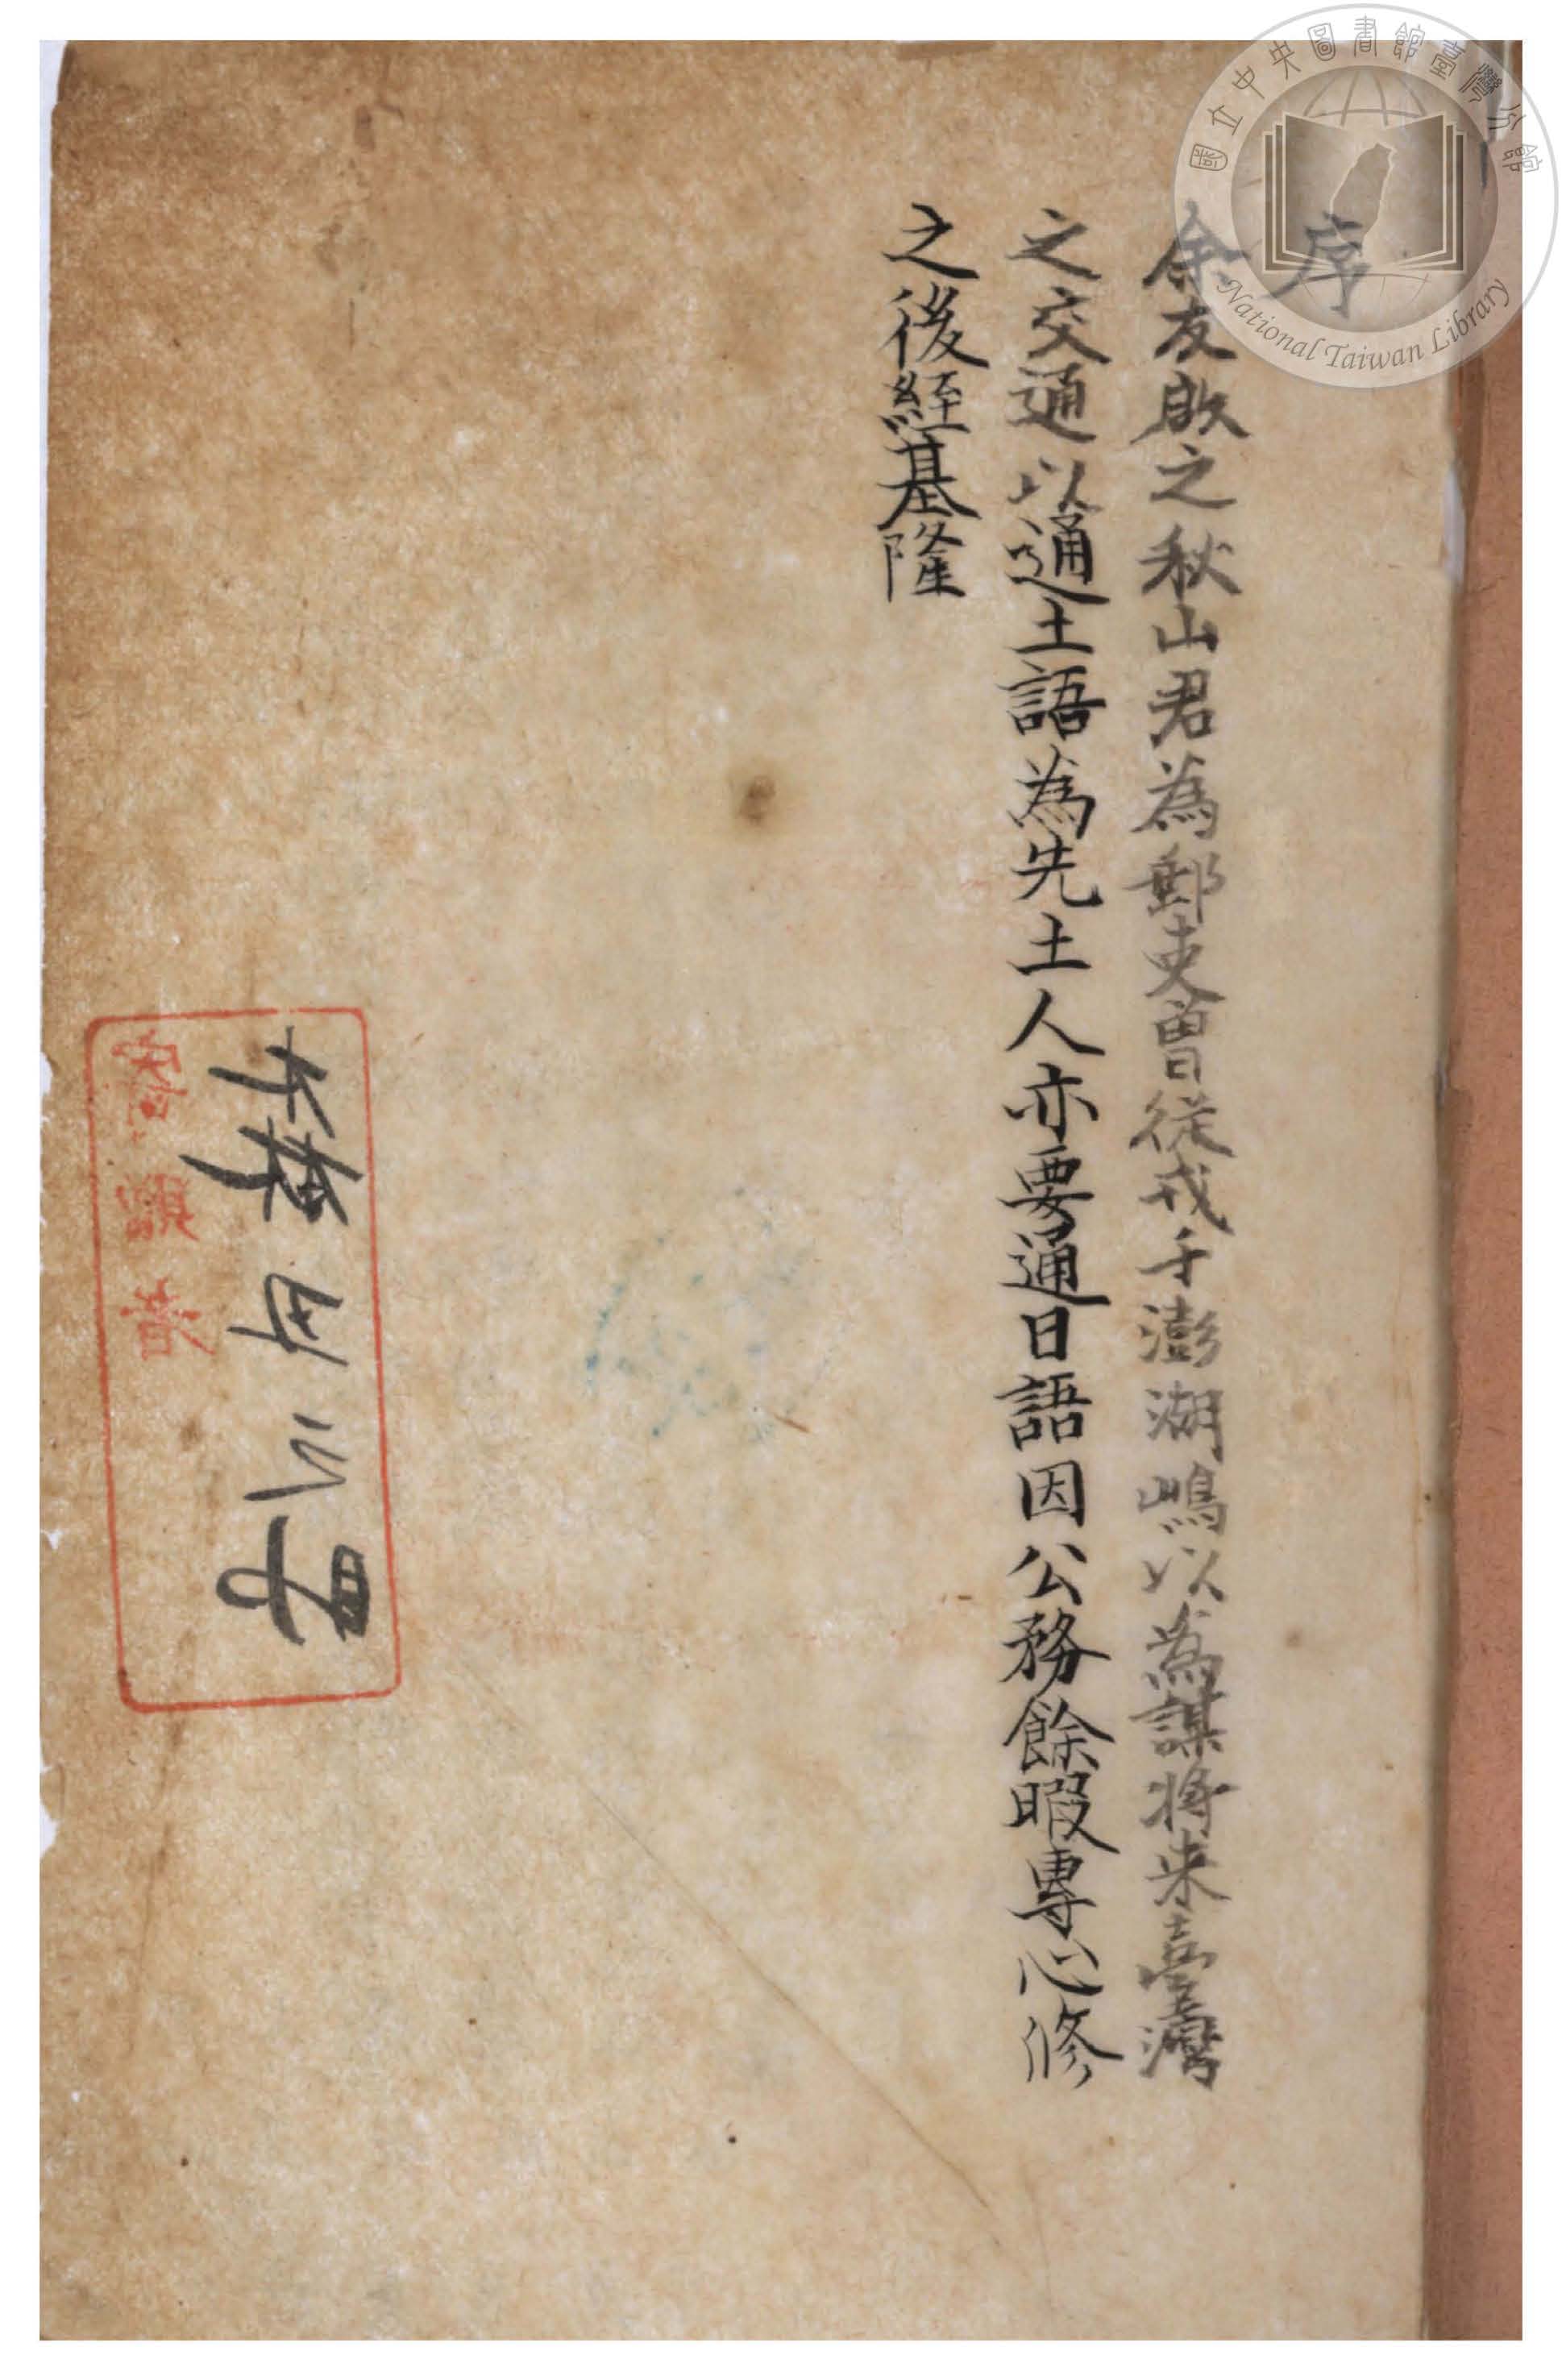 國立中央圖書館臺灣分館
National Taiwan Library
序
余友啟之秋山君為郵吏曾從戎于澎湖嶋以為謀将来臺灣
之交通以通土語為先土人亦要通日語因公務餘暇專心修
之後經基隆
寄贈者